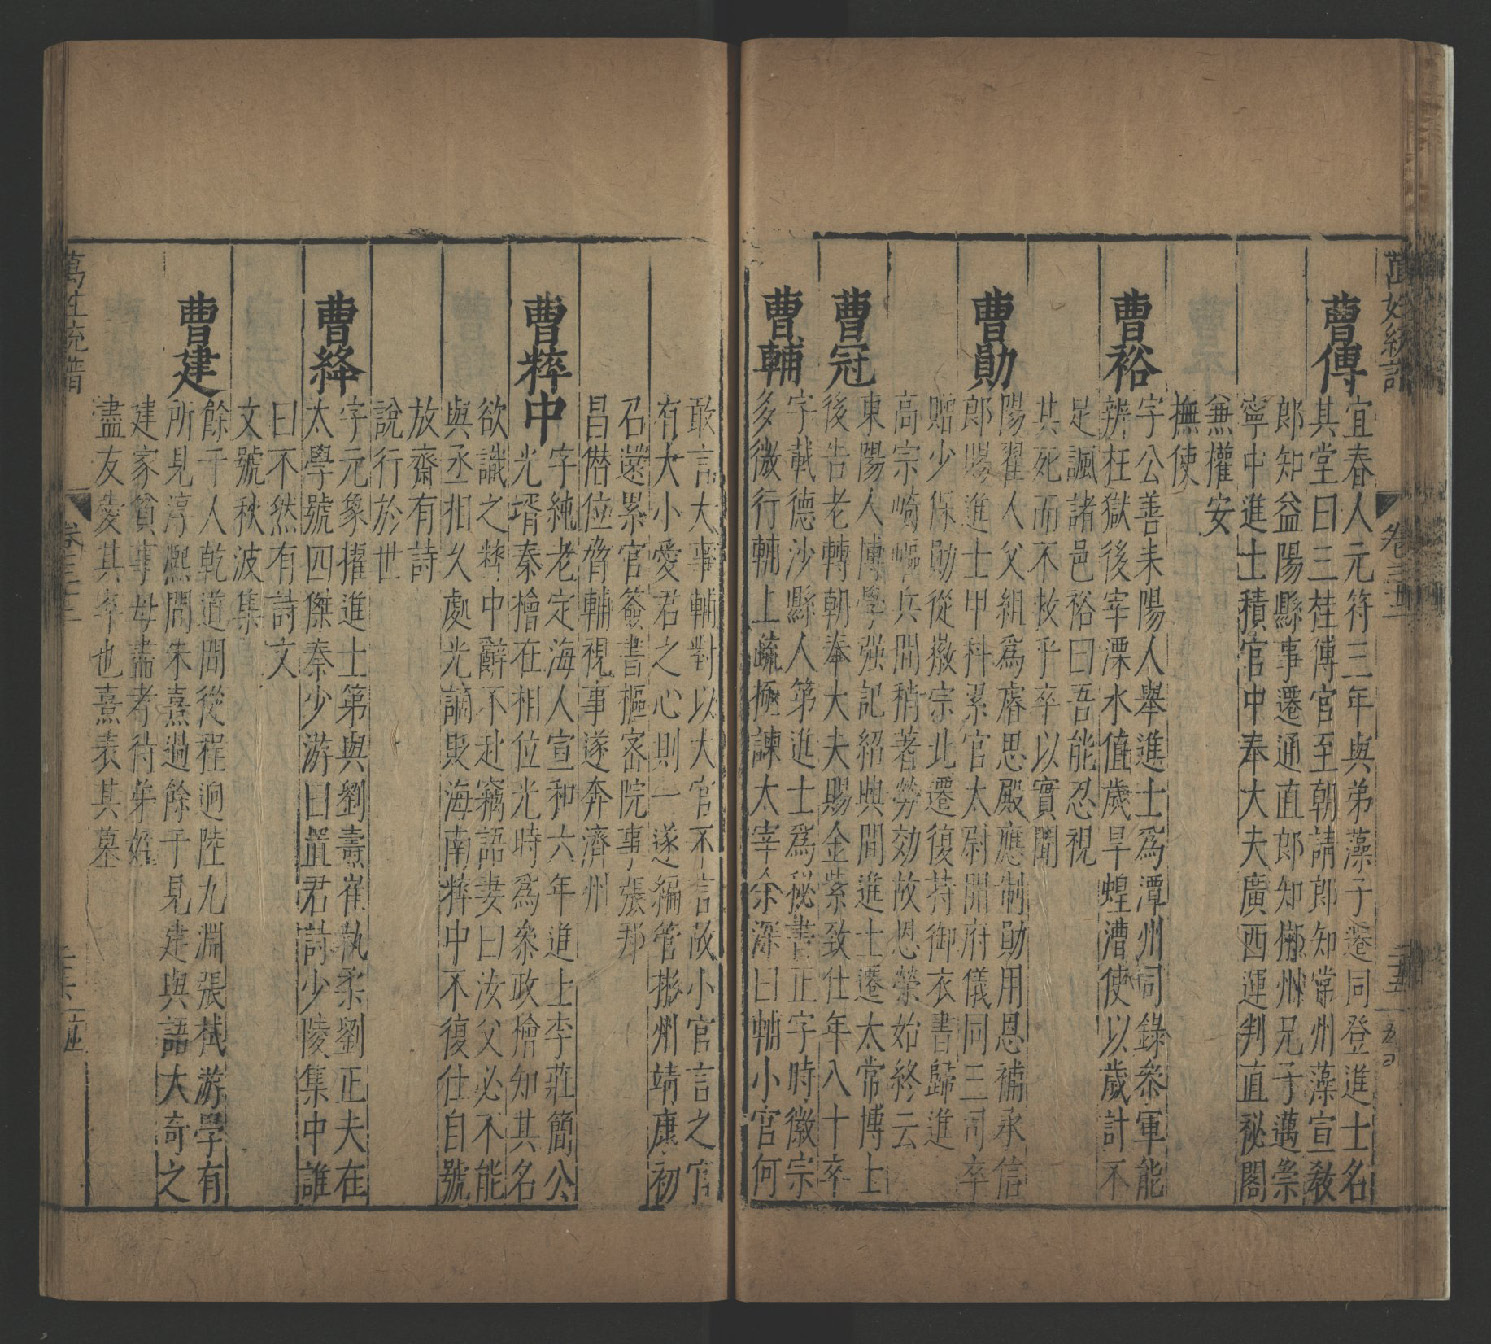 萬姓統譜 卷三十三 二十五
曹傳 宜春人元符三年與弟藻子遷同登進士名
其堂曰三桂傳官至朝請郎知常州藻宣敎
郎知益陽縣事遷通直郎知郴州兄子邁崇
寧中進士積官中奉大夫廣西運判直秘閣
兼權安
撫使
曹裕 字公善耒陽人舉進士爲潭州司錄參軍能
辨枉獄後宰溧水值歲旱蝗漕使以歲計不
足諷諸邑裕曰吾能忍視
其死而不救乎卒以實聞
曹勛 陽翟人父組爲睿思殿應制勛用恩補承信
郎賜進士甲科累官太尉開府儀同三司卒
贈少保勛從徽宗北遷復持御衣書歸進
高宗崎嶇兵間稍著勞効故恩榮始終云
曹冠 東陽人博學强記紹興間進士遷太常博士
後告老轉朝奉大夫賜金紫致仕年八十卒
曹輔 字載德沙縣人第進士爲秘書正字時徽宗
多微行輔上疏極諫太宰余深曰輔小官何
敢言大事輔對以大官不言故小官言之官
有大小愛君之心則一遂編管郴州靖康初
召還累官簽書樞密院事張邦
昌僭位脅輔視事遂奔濟州
曹粹中 字純老定海人宣和六年進士李莊簡公
光壻秦檜在相位光時爲參政檜知其名
欲識之粹中辭不赴竊語妻曰汝父必不能
與丞相久處光謫貶海南粹中不復仕自號
放齋有詩
說行於世
曹絳 字元象擢進士第與劉燾崔執柔劉正夫在
太學號四傑秦少游曰置君詩少陵集中誰
曰不然有詩文
文號秋波集
曹建 餘干人乾道間從程迥陸九淵張栻游學有
所見淳熙間朱熹過餘干見建與語大奇之
建家貧事母盡孝待弟姪
盡友愛其卒也熹表其墓
萬姓統譜 卷三十三 二十六